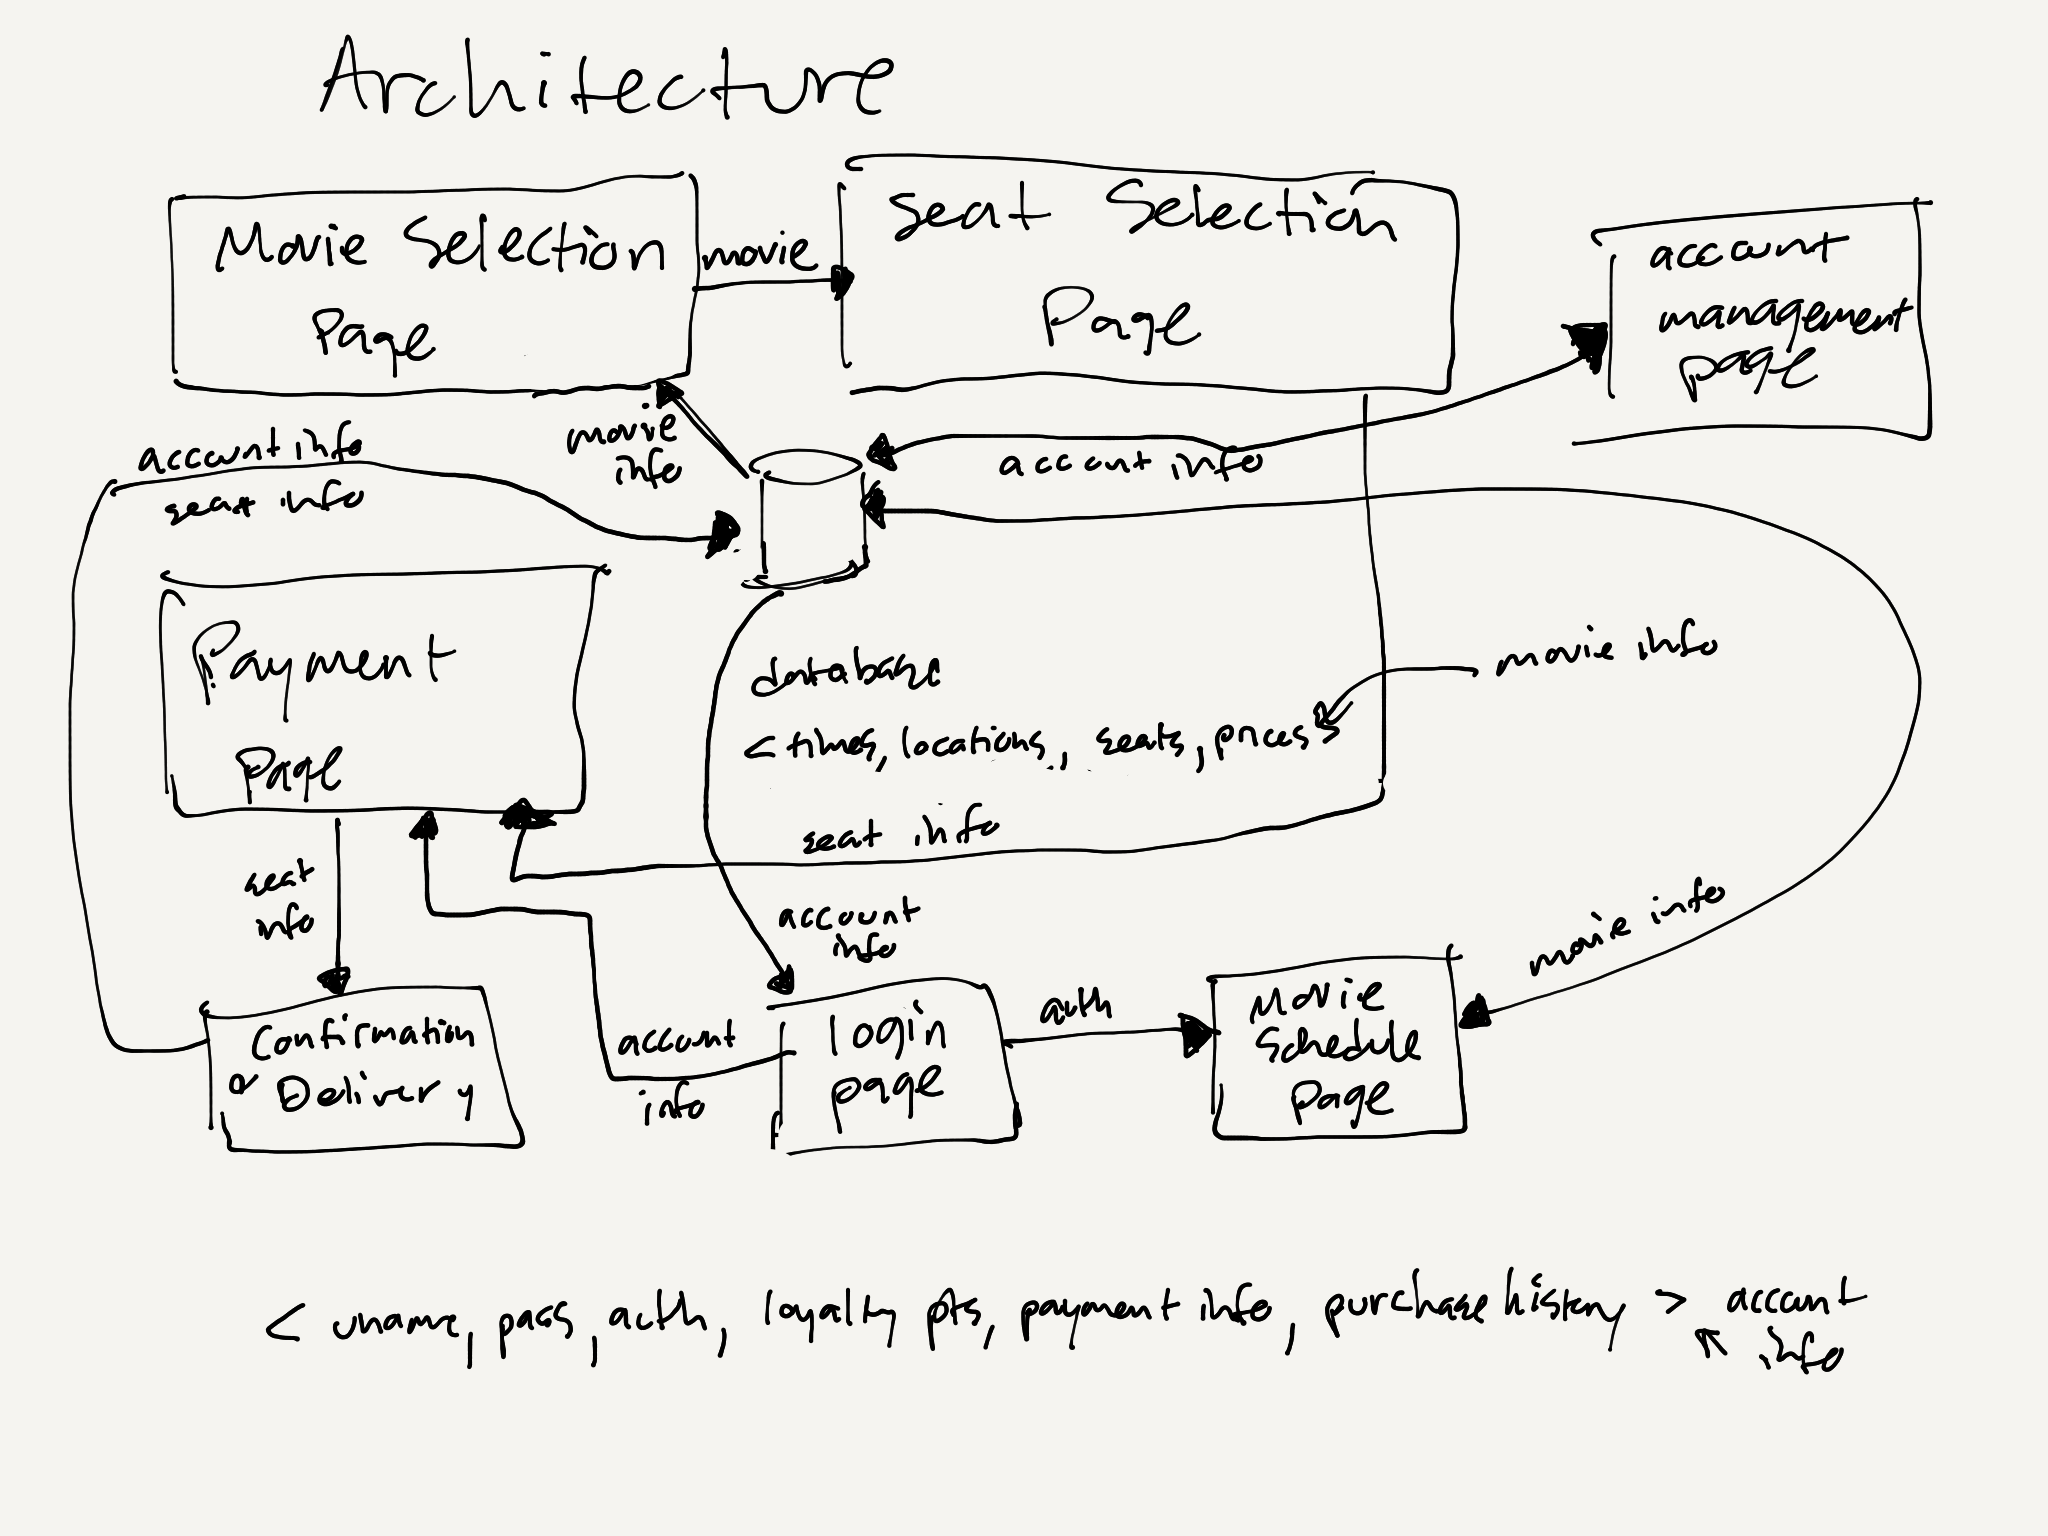 Architecture
Movie Selection
Page
movie
Seat Selection
Page
account
management
page
movie
info
account info
seat info
account info
Payment
Page
database
<times, locations, seats, prices>
movie info
seat info
seat
info
account
info
movie info
Confirmation
Delivery
account
info
login
page
auth
Movie
Schedule
page
< uname, pass, auth, loyalty pts, payment info, purchase history > account
info